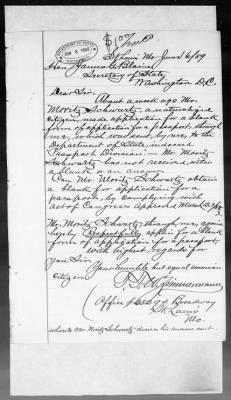 St Louis Mo June 6/89
Hon James G. Blaine
Secretary of State,
Washington D.C.
Dear Sir.
About a week ago Mr.
Moritz Schwartz, a naturalized
citizen, made application for a blank
form of application for a passport, through
me, which was sent, by me to the
Department of State, indorsed
Passport Division — Mr. Moritz
Schwartz has not received, either
a blank or an answer.
Can Mr. Moritz Schwartz obtain
a blank for application for a
passport, by complying with
act of Congress approved March
Mr. Moritz Schwartz through me, again
Respectfully applies for a blank
form of application for a passport,
with highest regards for
you Sir.
Your humble but equal american
citizen
Zimmermann
Office Broadway
St. Louis
Mo.
where Mr Moritz Schwartz desires his answer sent.